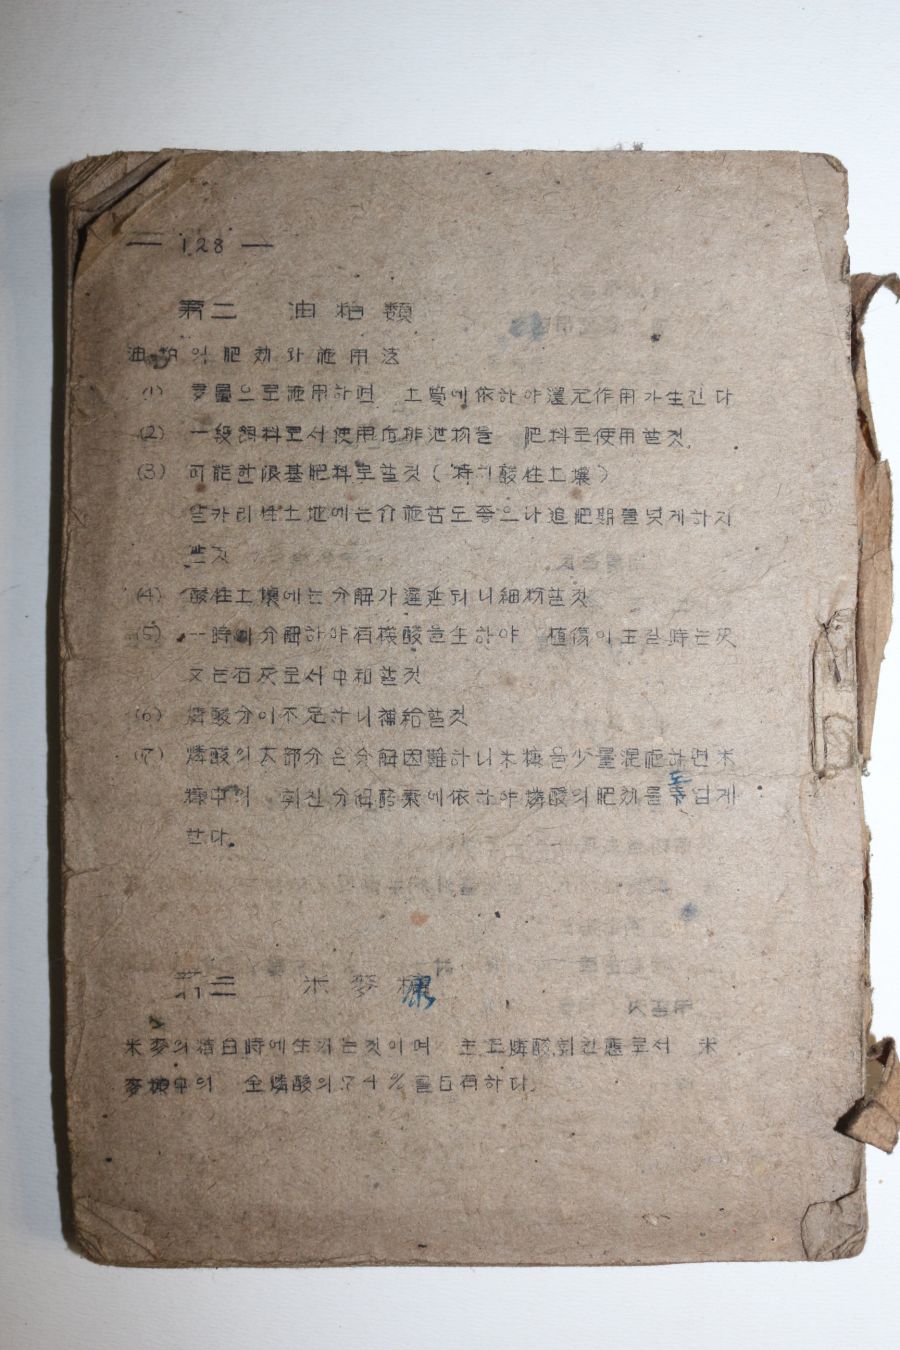 — 128 —
第二 油粕類
油粕의 肥効와 施用法
(1) 多量으로施用하면 土質에依하야還元作用가生긴다
(2) 一段飼料로서使用后排泄物을 肥料로使用할것.
(3) 可能한限基肥料로할것(特히酸性土壤)
알카리性土地에는 도죻으나追肥期를늦게하지
할것
(4) 酸性土壤에는分解가遲延되니細粉할것
(5) 一時에分解하야有機酸을生하야 植傷이生길時는灰
又는石灰로서中和할것
(6) 燐酸分이不足하니補給할것
(7) 燐酸의大部分은分解困難하니米糠을少量混施하면米
糠中의 휘친分解酵素에依하야燐酸의肥効를높게
한다.
第三 米麥糠
米麥의精白時에生기는것이며 主로燐酸.휘친態로서 米
麥糠中의 全燐酸의74%를占有하다.